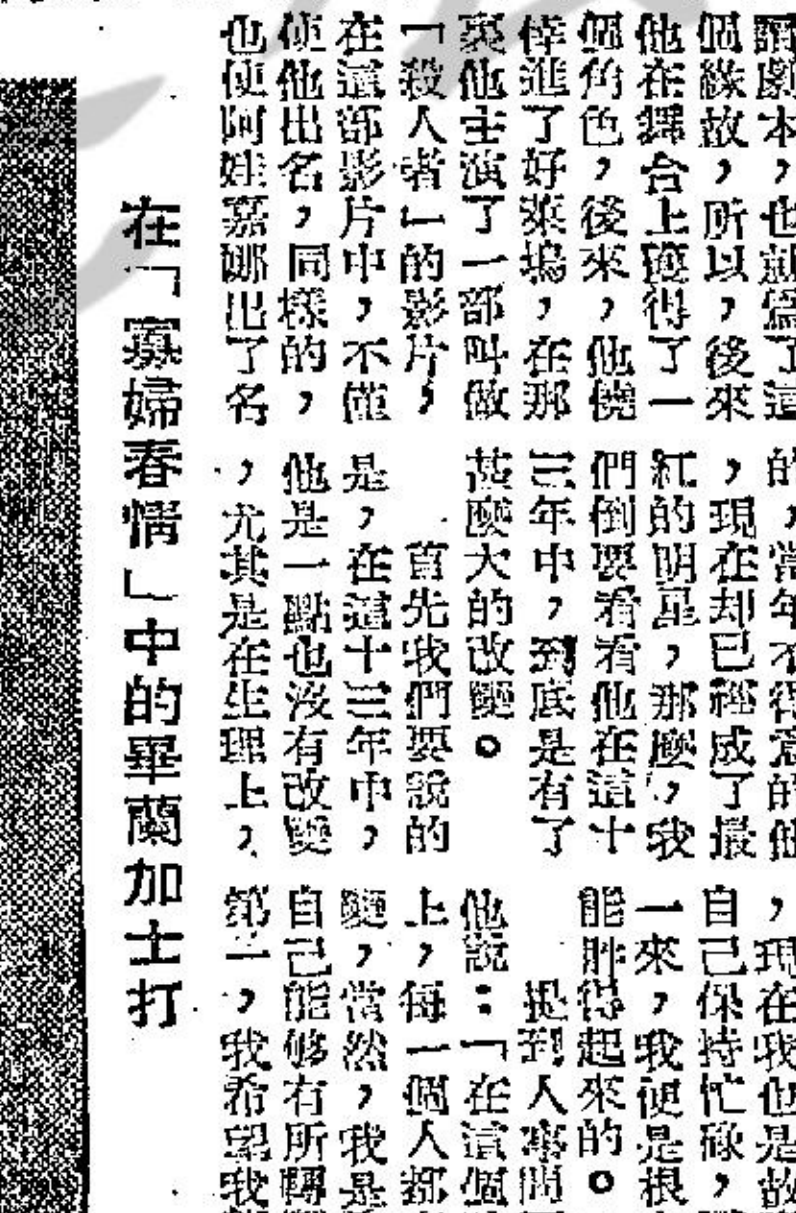 讀劇本，也就爲了這
個緣故，所以，後來
他在舞台上獲得了一
個角色，後來，他僥
倖進了好萊塢，在那
裏他主演了一部叫做
「殺人者」的影片，
在這部影片中，不僅
使他出名，同樣的，
也使阿娃嘉娜出了名
的，當年不得意的他
，現在却已經成了最
紅的明星，那麽，我
們倒要看看他在這十
三年中，到底是有了
甚麽大的改變。
首先我們要說的
是，在這十三年中，
他是一點也沒有改變
，尤其是在生理上，
，現在我也是故
自己保持忙碌，
一來，我便是根
能胖得起來的。
提到人事間
他說：「在這個
上，每一個人都
變，當然，我是
自己能够有所轉
第二，我希望我
在「寡婦春情」中的畢蘭加士打